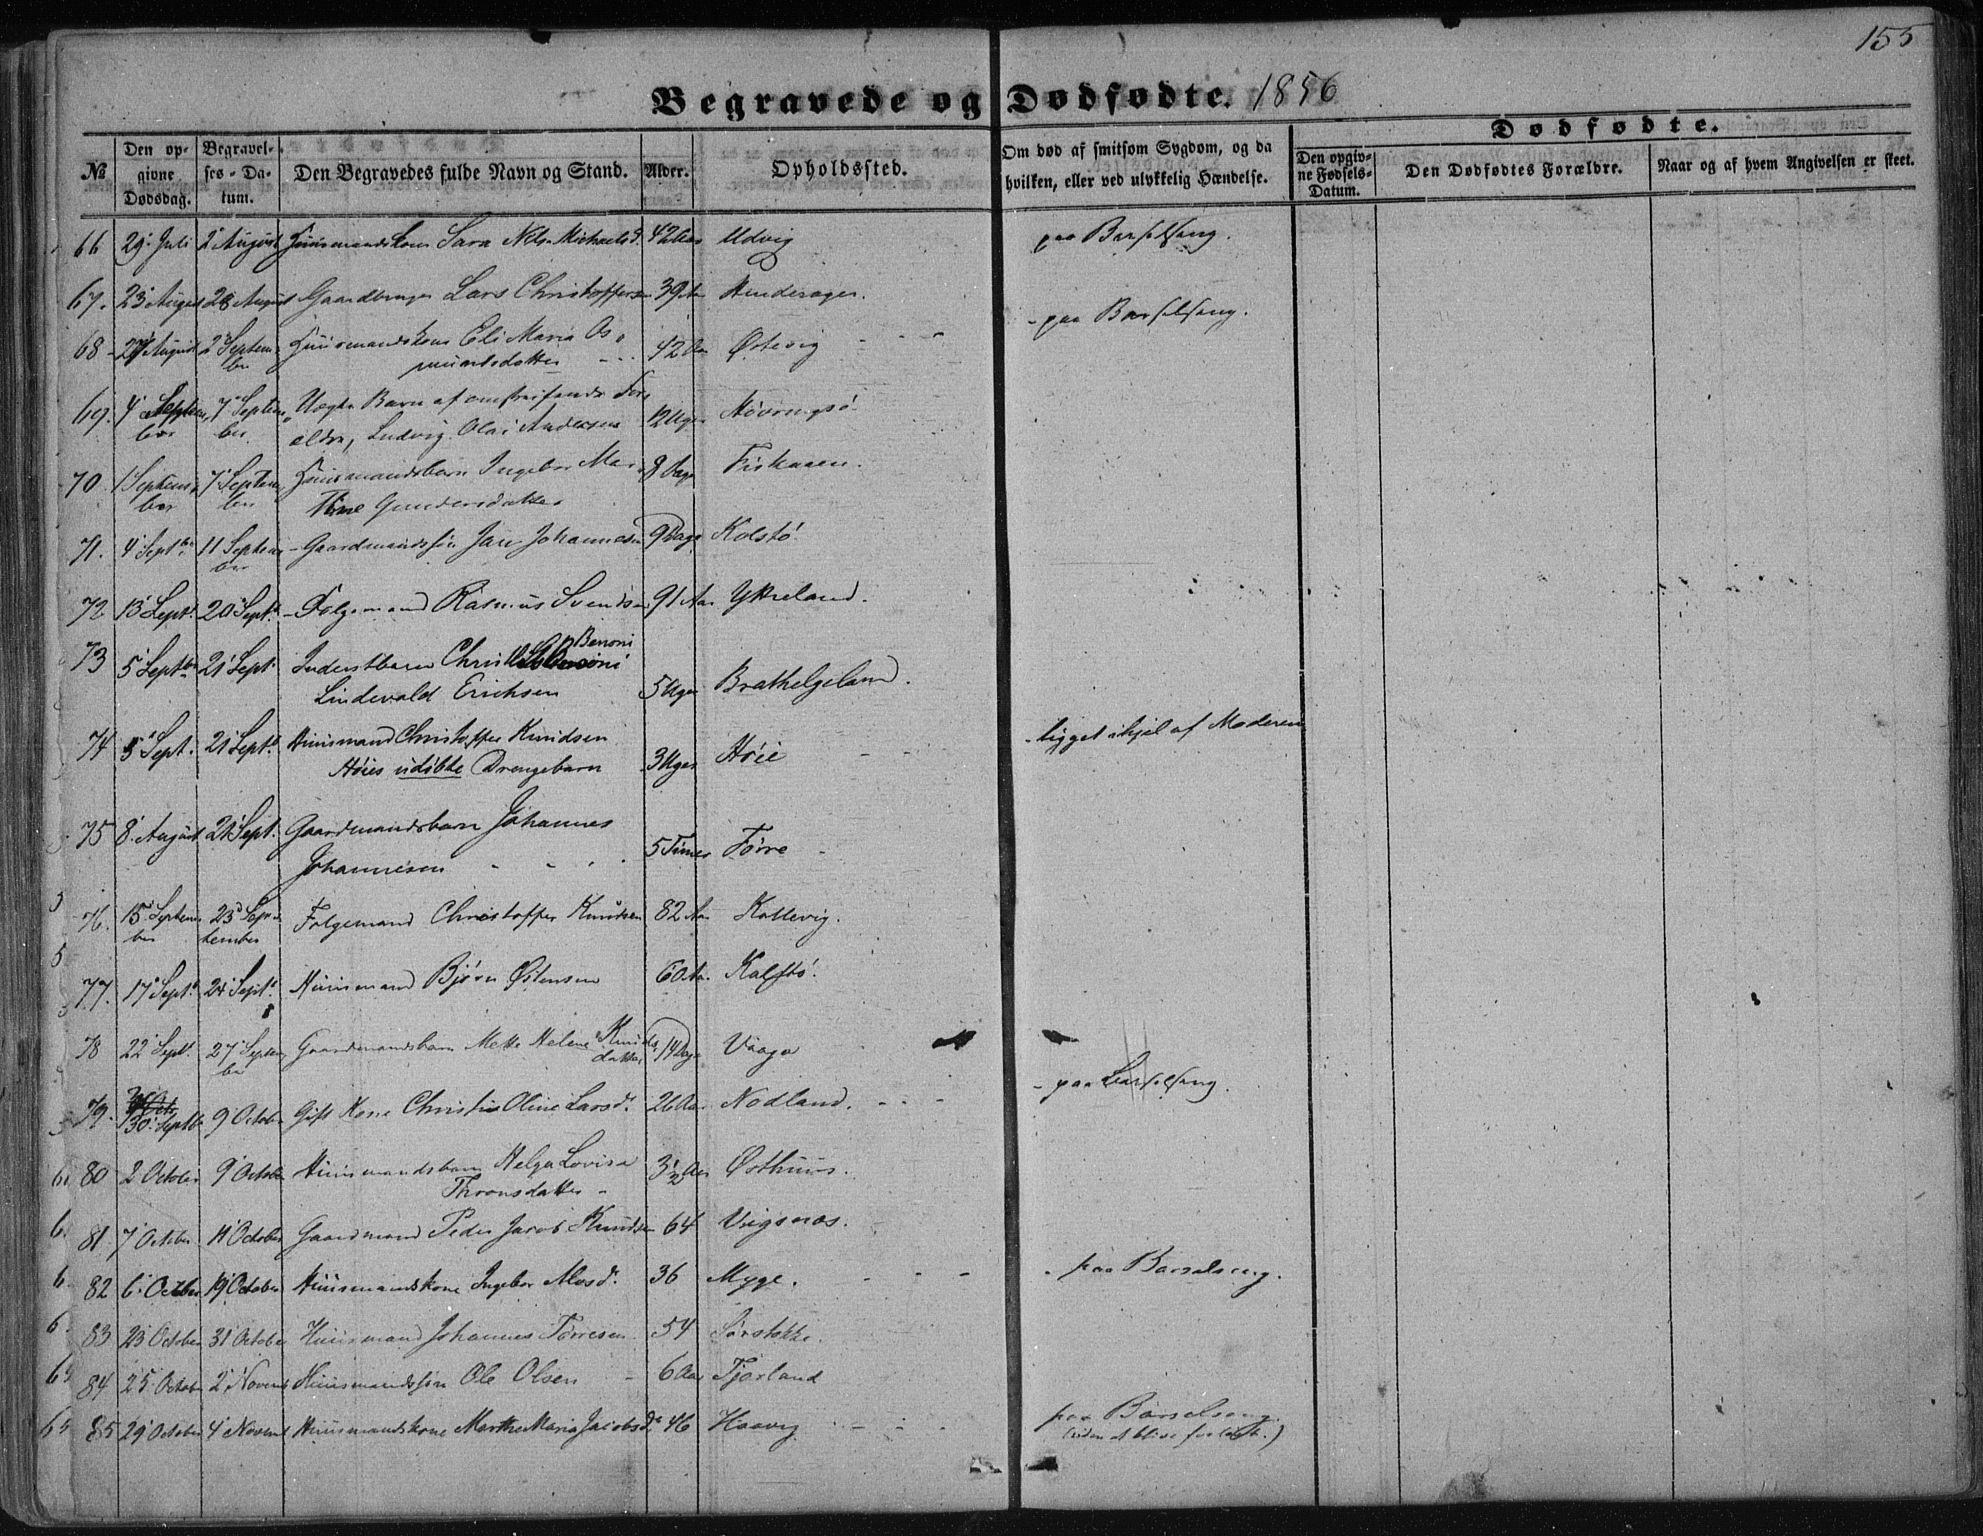 155
Begravede og Dødfødte. 1856
Dødfødte.
№
Den opgivne Dødsdag.
Begravelses-Datum.
Den Begravedes fulde Navn og Stand.
Alder.
Opholdssted.
Om død af smitsom Sygdom, og da hvilken, eller ved ulykkelig Hændelse.
Den opgivne Fødsels-Datum.
Den Dødfødtes Forældre.
Naar og af hvem Angivelsen er skeet.
66 29 Juli 2 August Huusmandskone Sara Michaelsd. 42 Aar Udvig paa Barselseng.
67. 23 August 28 August Gaardbruger Lars Christoffersen 39 Aar
68 27 August 2 Septem- Huusmandskone Eli Maria As- 42 Aar Østevig - - - paa Barselseng.
ber mundsdatter
69. 4 Septem- 7 Septem- Uægte Barn af omstreifende For- 12 Uger
ber ber ældre, Ludvig Olai Andersen
70. 1 Septem- 7 Septem- Huusmandsbarn Ingebor Mar- 8 Dage Fiskaaen.
ber ber thine Gundersdatter
71. 4 Septbr. 11 Septem- Gaardmandssøn Jan Johannesen 9 Dage Kolstø.
ber
72 13 Septr. 20 Septr. Folgemand Rasmus Svendsen 91 Aar Ytreland.
73 5 Septbr. 21 Sept. Inderstbarn Benoni
Lindevald Erichsen 5 Uger Brathelgeland.
74 5 Sept. 21 Septbr. Huusmand Christoffer Knudsen ligget ihjel af Moderen
Høies udøbte Drengebarn 3 Uger Høie - - -
75 8 August 21 Sept. Gaardmandsbarn Johannes
Johannesen 5 Timer Førre
76. 15 Septem- 23 Sep- Folgemand Christoffer Knudsen 82 Aar Kallevig.
ber tember
77. 17 Septbr. 24 Septr. Huusmand Bjørn Østensen 60 Aar Kalstø.
78 22 Septr. 27 Septem- Gaardmandsbarn Mette Helene Knuds- 14 Dage Vaage
ber datter
79. 30 Septbr. 9 October Gift Kone Christine Oline Larsdr. 26 Aar Nodland. - - - paa Barselseng.
80 2 October 9 October Huusmandsbarn Helga Lovisa 3½ Aar Østhuus.
Thronsdatter
81 7 October 11 October Gaardmand Peder Jacob Knudsen 64 Viigsnæs.
82 6 October 19 October Huusmandskone Ingebor 36 Myge. - - - paa Barselseng.
83 23 October 31 October Huusmand Johannes Torresen 54 Sørstokke.
84 25 October 2 Novemb. Huusmandssøn Ole Olsen 6 Aar Fjorland
85 29 October 4 Novemb. Huusmandskone Marthe Maria Jacobsdr. 46 Haavig. - - - paa Barselseng.
(uden at blive forløst.)